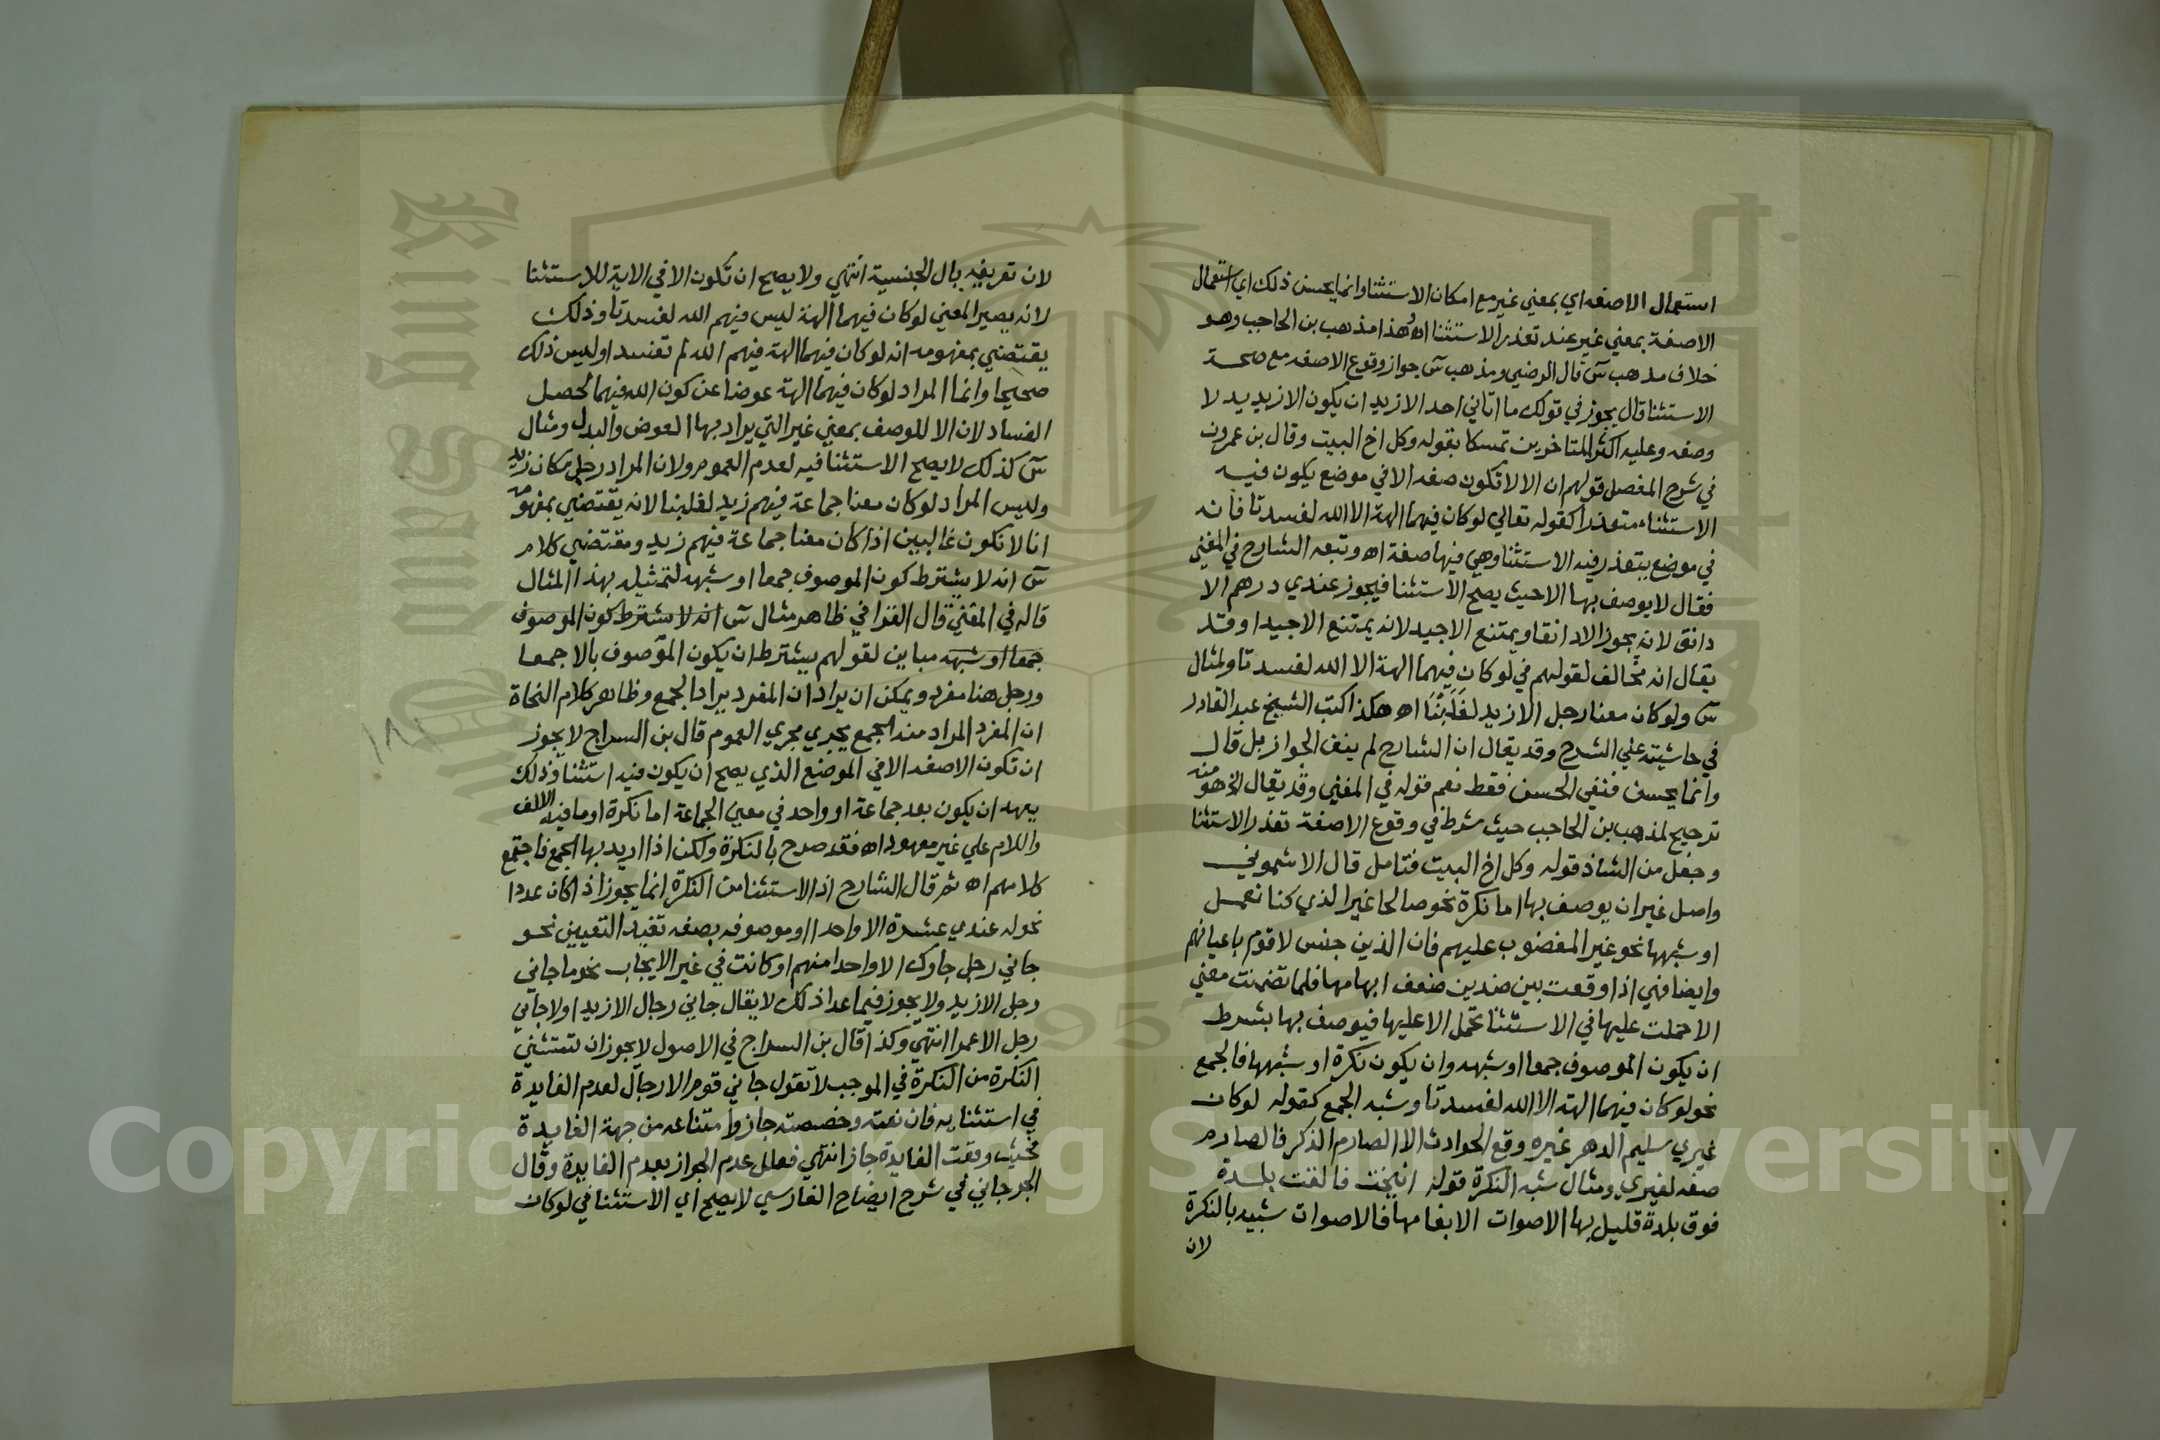 استعمال الا صفه اي بمعني غير مع امكان الاستثنا وانما يحسن ذلك اي استعمال
الا صفة بمعني غير عند تعذر الاستثنا اه وهذا مذهب بن الحاجب وهو
خلاف مذهب س قال الرضي ومذهب س جواز وقوع الا صفه مع صحة
الاستثنا قال يجوز في قولك ما اتاني احد الا زيد ان يكون الا زيد بدلا
وصفه وعليه اكثر المتاخرين تمسكا بقوله وكل اخ البيت وقال بن عمرون
في شرح المفصل قولهم ان الا لا تكون صفه الا في موضع يكون فيه
الاستثناء متعذرا كقوله تعالي لو كان فيهما الهة الا الله لفسدتا فانه
في موضع يتعذر فيه الاستثنا وهي فيها صفة اه وتبعه الشارح في المغني
فقال لا يوصف بها الا حيث يصح الاستثنا فيجوز عندي درهم الا
دانق لانه يجوز الا دانقا ويمتنع الا جيد لانه يمتنع الا جيدا وقد
يقال انه مخالف لقولهم في لو كان فيهما الهة الا الله لفسدتا ولمثال
س ولو كان معنا رجل الا زيد لغلبنا اه هكذا كتب الشيخ عبد القادر
في حاشيته علي الشرح وقد يقال ان الشارح لم ينف الجواز بل قال
وانما يحسن فنفي الحسن فقط نعم قوله في المغني وقد يقال الخ هو منه
ترجيح لمذهب بن الحاجب حيث شرط في وقوع الا صفة تعذر الاستثنا
وجعل من الشاذ قوله وكل اخ البيت فتامل قال الاشموني
واصل غير ان يوصف بها اما نكرة نحو صالحا غير الذي كنا نعمل
او شبهها نحو غير المغضوب عليهم فان الذين جنس لا قوم باعيانهم
وايضا فهي اذا وقعت بين ضدين ضعف ابهامها فلما تضمنت معني
الا حملت عليها في الاستثنا تحمل الا عليها فيوصف بها بشرط
ان يكون الموصوف جمعا او شبهه وان يكون نكرة او شبهها فالجمع
نحو لو كان فيهما الهة الا الله لفسدتا وشبه الجمع كقوله لو كان
غيري سليم الدهر غيره وقع الحوادث الا الصارم الذكر فالصارم
صفه لغيري ومثال شبه النكرة قوله انيخت فالقت بلدة
فوق بلدة قليل بها الاصوات الا بغامها فالاصوات شبيه بالنكرة
لان
لان تعريفه بال الجنسية انتهي ولا يصح ان تكون الا في الاية للاستثنا
لانه يصير المعني لو كان فيهما الهة ليس فيهم الله لفسدتا وذلك
يقتضي بمفهومه انه لو كان فيهما الهة فيهم الله لم تفسدا وليس ذلك
صحيحا وانما المراد لو كان فيهما الهة عوضا عن كون الله فيهما لحصل
الفساد لان الا للوصف بمعني غير التي يراد بها العوض والبدل ومثال
س كذلك لا يصح الاستثنا فيه لعدم العموم ولان المراد رجل مكان زيد
وليس المراد لو كان معنا جماعة فيهم زيد لغلبنا لانه يقتضي بمفهومه
انا لا نكون غالبين اذا كان معنا جماعة فيهم زيد ومقتضي كلام
س انه لا يشترط كون الموصوف جمعا او شبهه لتمثيله بهذا المثال
قاله في المغني قال القرافي ظاهر مثال س انه لا يشترط كون الموصوف
جمعا او شبهه مباين لقولهم يشترط ان يكون الموصوف بالا جمعا
ورجل هنا مفرد ويمكن ان يراد ان المفرد يراد الجمع وظاهر كلام النحاة
ان المفرد المراد منه الجمع يجري مجري العموم قال بن السراج لا يجوز
ان تكون الا صفه الا في الموضع الذي يصح ان يكون فيه استثنا وذلك
يعهد ان يكون بعد جماعة او واحد في معني الجماعة اما نكرة او ما فيه الالف
واللام علي غير معهود اه فقد صرح بالنكرة ولكن اذا اريد بها الجمع فاجتمع
كلامهم اه ثم قال الشارح اذ الاستثنا من النكرة انما يجوز اذ اكان عددا
نحو له عندي عشرة الا واحدا او موصوفه بصفه تفيد التعيين نحو
جاني رجل جاوك الا واحدا منهم او كانت في غير الايجاب نحو ما جاني
رجل الا زيد ولا يجوز فيما عدا ذلك لا يقال جاني رجال الا زيد اولا جاني
رجل الا عمرا انتهي وكذا قال بن السراج في الاصول لا يجوز ان تستثني
النكرة من النكرة في الموجب لا تقول جاني قوم الا رجال لعدم الفايدة
في استثنايه فان نعته وخصصته جاز وامتناعه من جهة الفايدة
فحيث وقعت الفايدة جاز انتهي فعلل عدم الجواز بعدم الفايدة وقال
الجرجاني في شرح ايضاح الفارسي لا يصح اي الاستثنا في لو كان
Copyright © King Saud University
King Saud University
1957